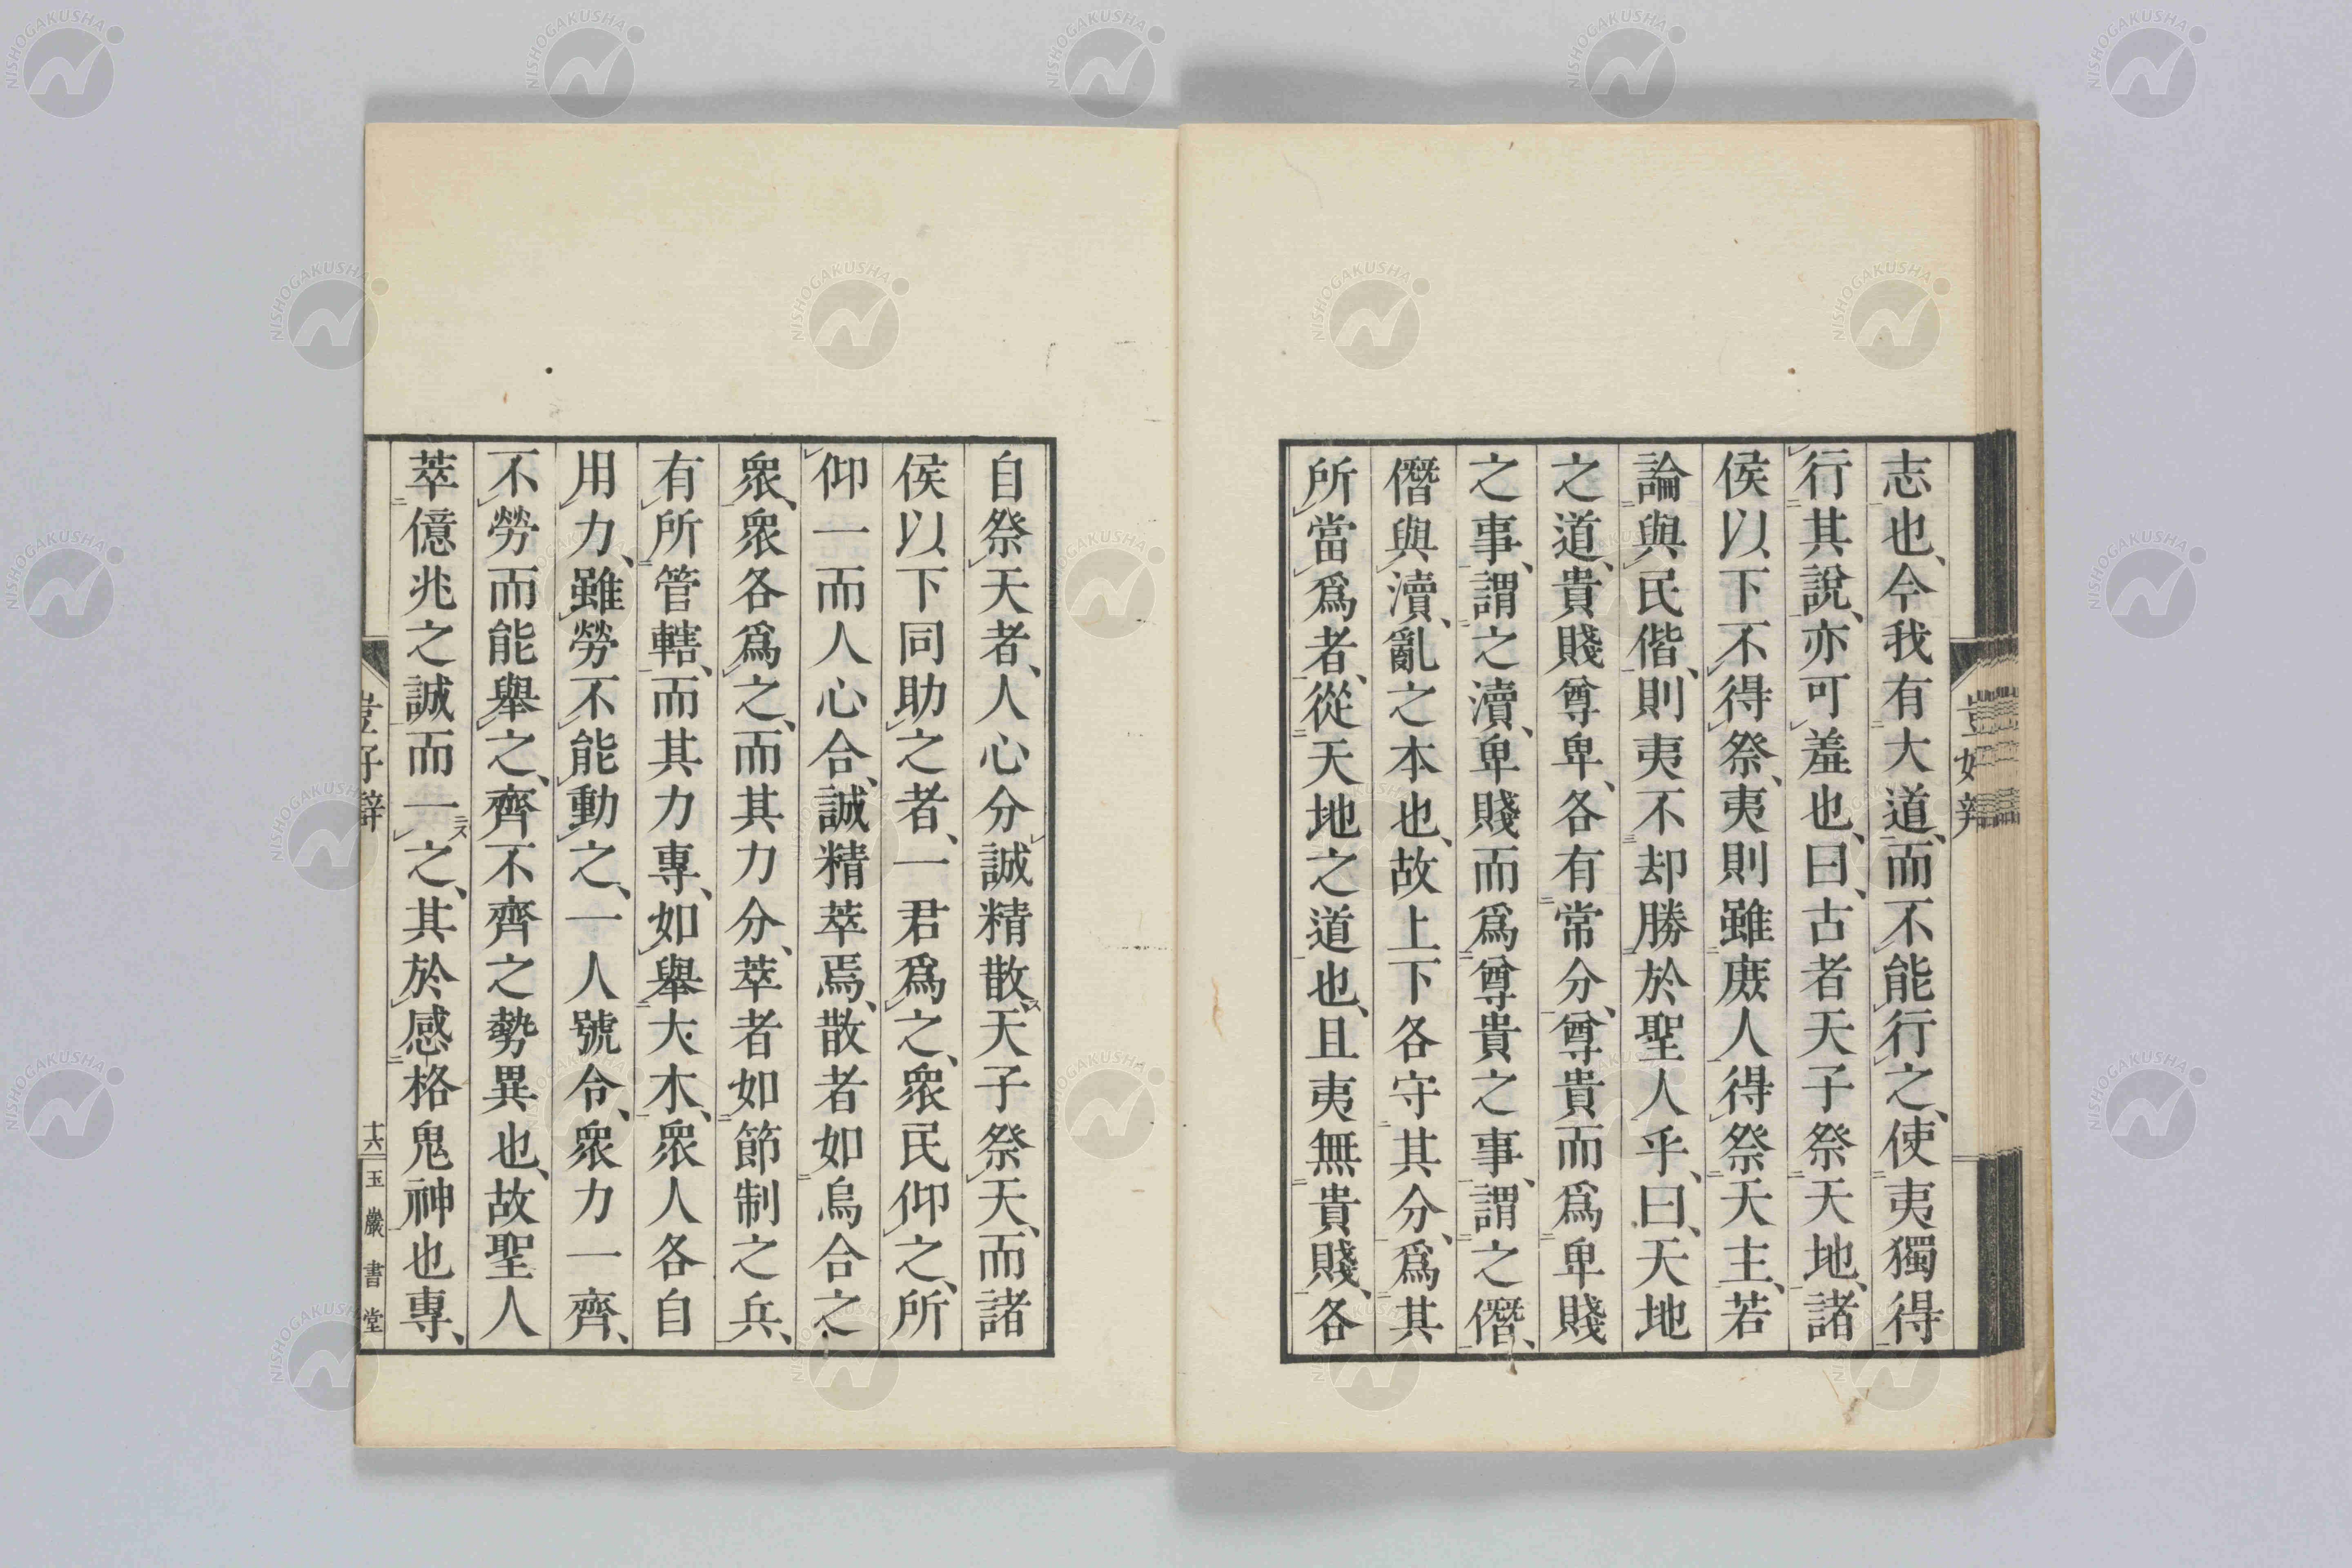 志也、今我有大道、而不能行之、使夷獨得
行其說、亦可羞也、曰、古者天子祭天地、諸
侯以下不得祭、夷則雖庶人得祭天主、若
論與民偕、則夷不却勝於聖人乎、曰、天地
之道、貴賤尊卑、各有常分、尊貴而爲卑賤
之事、謂之瀆、卑賤而爲尊貴之事、謂之僭、
僭與瀆、亂之本也、故上下各守其分、爲其
所當爲者、從天地之道也、且夷無貴賤、各
自祭天者、人心分誠精散、天子祭天、而諸
侯以下同助之者、一君爲之、衆民仰之、所
仰一而人心合、誠精萃焉、散者如烏合之
衆、衆各爲之、而其力分、萃者如節制之兵、
有所管轄、而其力專、如舉大木、衆人各自
用力、雖勞不能動之、一人號令、衆力一齊、
不勞而能舉之、齊不齊之勢異也、故聖人
萃億兆之誠而一之、其於感格鬼神也專、
豈好辯
十六
玉巖書堂
NISHOGAKUSHA